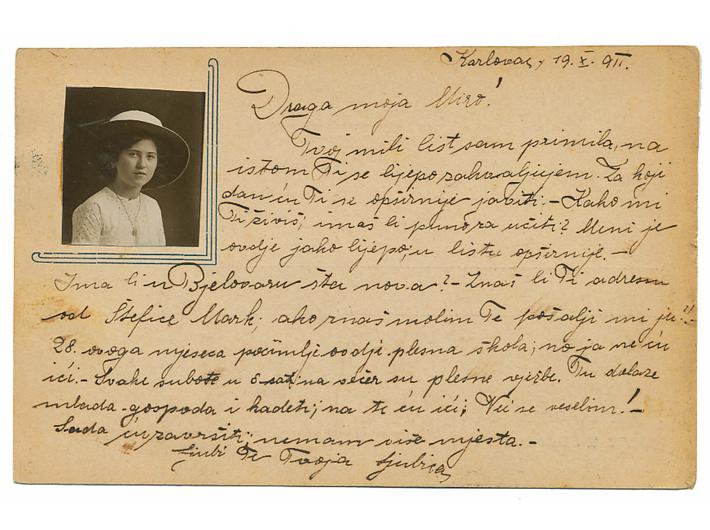 Karlovac, 19. X. 911.
Draga moja Miro!
Tvoj mili list sam primila, na
istom Ti se lijepo zahvaljujem. Za koji
dan ću Ti se opširnije javiti. – Kako mi
Ti živiš; imaš li puno za učiti? Meni je
ovdje jako lijepo; u listu opširnije. –
Ima li u Bjelovaru šta nova? – Znaš li Ti adresu
od Štefice Mark; ako znaš molim Te pošalji mi ju!! –
28. ovoga mjeseca počimlje ovdje plesna škola; no ja ne ću
ići. – Svake subote u 8 sati na večer su plesne vježbe. Tu dolaze
mlada gospoda i kadeti; na te ću ići; Već se veselim! –
Sada ću završiti; nemam više mjesta. –
Ljubi Te Tvoja Ljubica